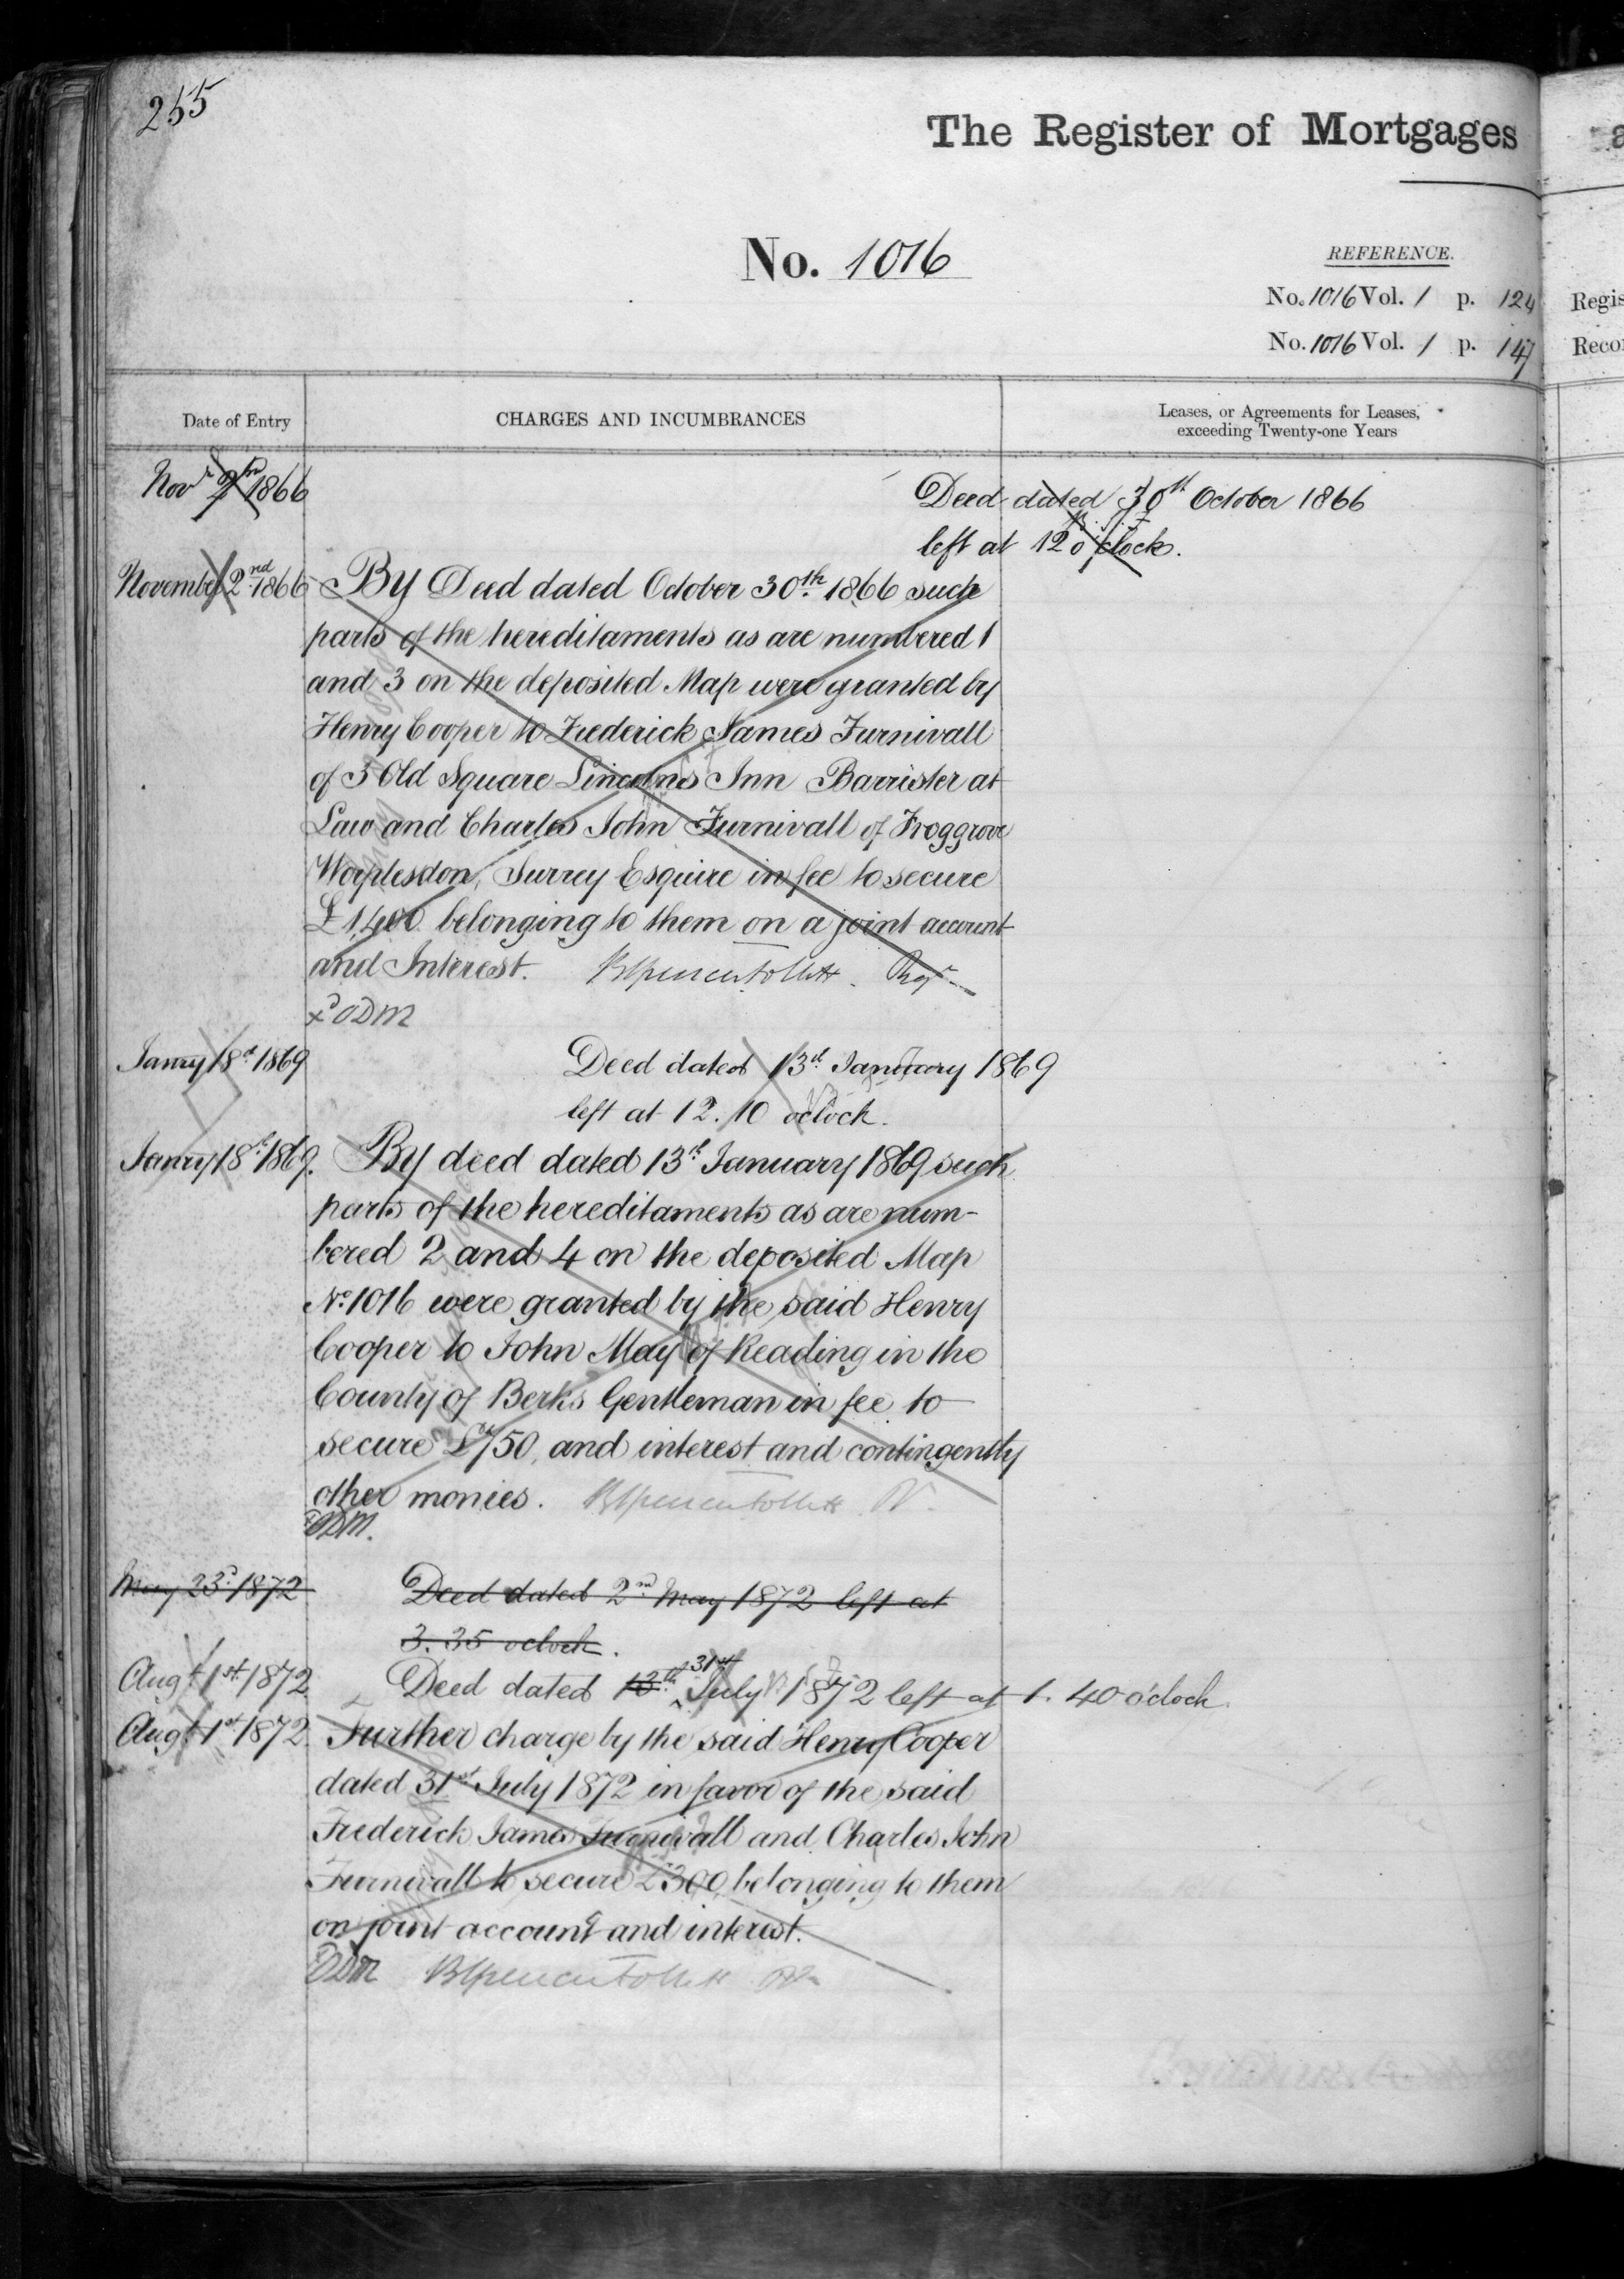 255
The Register of Mortgages
No. 1016
REFERENCE.
No. 1016 Vol. 1 p. 124
Regis
No. 1016 Vol. 1 p. 147
Recor
Date of Entry
CHARGES AND INCUMBRANCES
Leases, or Agreements for Leases,
exceeding Twenty-one Years
Novr 2nd 1866
Deed dated 30th October 1866
left at 12 o'clock.
November 2nd 1866
By Deed dated October 30th 1866 such
parts of the hereditaments as are numbered 1
and 3 on the deposited Map were granted by
Henry Cooper to Frederick James Furnivall
of 3 Old Square Lincolns Inn Barrister at
Law and Charles John Furnivall of Froggrove
Worplesdon, Surrey Esquire in fee to secure
£1,400 belonging to them on a joint account
and Interest. Regr
ODM
Janry 18th 1869
Deed dated 13th January 1869
left at 12.10 oclock.
Janry 18th 1869.
By deed dated 13th January 1869 such
parts of the hereditaments as are num-
bered 2 and 4 on the deposited Map
No. 1016 were granted by the said Henry
Cooper to John May of Reading in the
County of Berks Gentleman in fee to
secure £750, and interest and contingently
other monies.
ODM.
May 23d 1872
Deed dated 2nd May 1872 left at
3.35 oclock.
Augt 1st 1872
Deed dated 13th 31st July 1872 left at 1.40 o'clock.
Augt 1st 1872
Further charge by the said Henry Cooper
dated 31st July 1872 in favor of the said
Frederick James Furnivall and Charles John
Furnivall to secure £300 belonging to them
on joint account and interest.
ODM